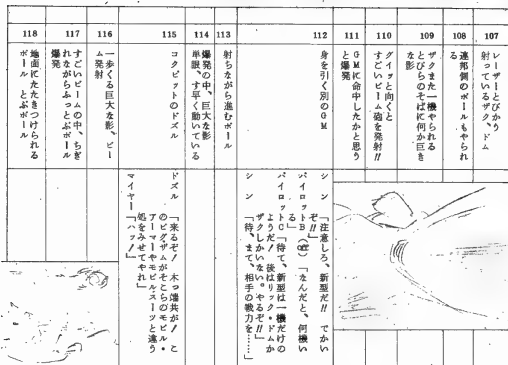 107
レーザーとびかう
射っているザク、ドム
108
連邦側のボールもやられ
る
109
ザクまた一機やられる
とびらのそばに何か巨き
な影
110
グイッと向くと
すごいビーム砲を発射!!
111
GMに命中したかと思う
と爆発
112
身を引く別のGM
シン「注意しろ、新型だ!! でかい
ぞ!!」
パイロットB(声)「なんだと、何機い
る」
パイロットC「待て、新型は一機だけの
ようだ! 後はリック・ドムか
ザクしかいない。やるぞ!!」
シン「待、まて、相手の戦力を……」
113
射ちながら進むボール
114
爆発の中、巨大な影
単眼、す早く動いている
115
コクピットのドズル
ドズル「来るぞ! 木っ端共が! こ
のビグザムがそこらのモビル・
アーマーやモビル・スーツと違う
処をみせてやれ」
マイヤー「ハッ!」
116
一歩くる巨大な影、ビー
ム発射
117
すごいビームの中、ちぎ
れながらふっとぶボール
爆発
118
地面にたたきつけられる
ボール とぶボール